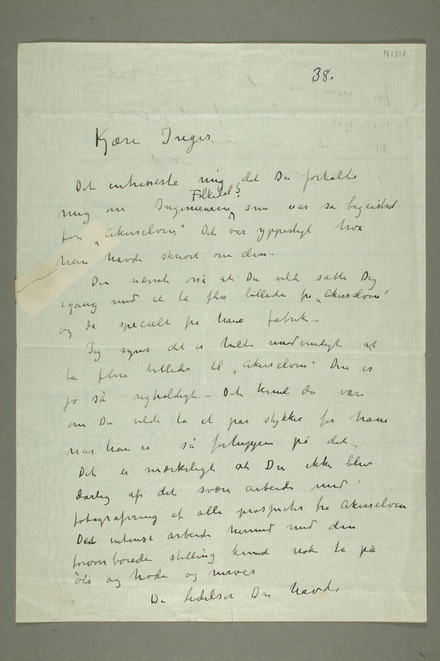 N1318
38.
Kjære Ireger
Det intreserte mig det Du fortalte
Folkestad?
mig om Ingeniøren, som var så begeistret
for „Akerselven" Det var ypperligt hva
han havde skrevet om den.
Du nævnte også at Du vilde sætte Dig
igang med at ta flere billeder fra „Akerselven"
og da specielt fra hans fabrik –
Jeg synes det er helt unødvendigt at
ta flere billeder til „Akerselven" Den er
jo så righoldigt – Det kunde da være
om Du vilde ta et par stykker for ham
når han er så forhippen på det.
Det er mærkeligt at Du ikke blev
dårlig af det svære arbeide med
fotografering af alle prospekter fra Akerselven
Det intense arbeide kunde med den
foroverbøiede stilling kunde nok ta på
øie og hode og nerver
De lidelser Du havde